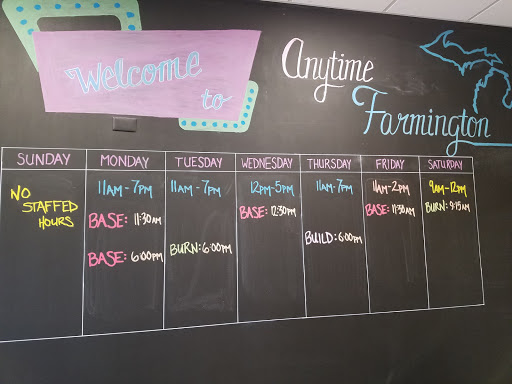 Welcome
to
Anytime
Farmington
SUNDAY MONDAY TUESDAY WEDNESDAY THURSDAY FRIDAY SATURDAY
NO
STAFFED
HOURS
11AM-7PM
BASE: 11:30AM
BASE: 6:00PM
11AM-7PM
BURN: 6:00PM
12PM-5PM
BASE: 12:30PM
11AM-7PM
BUILD: 6:00PM
11AM-2PM
BASE: 11:30AM
9AM-12PM
BURN: 9:15AM